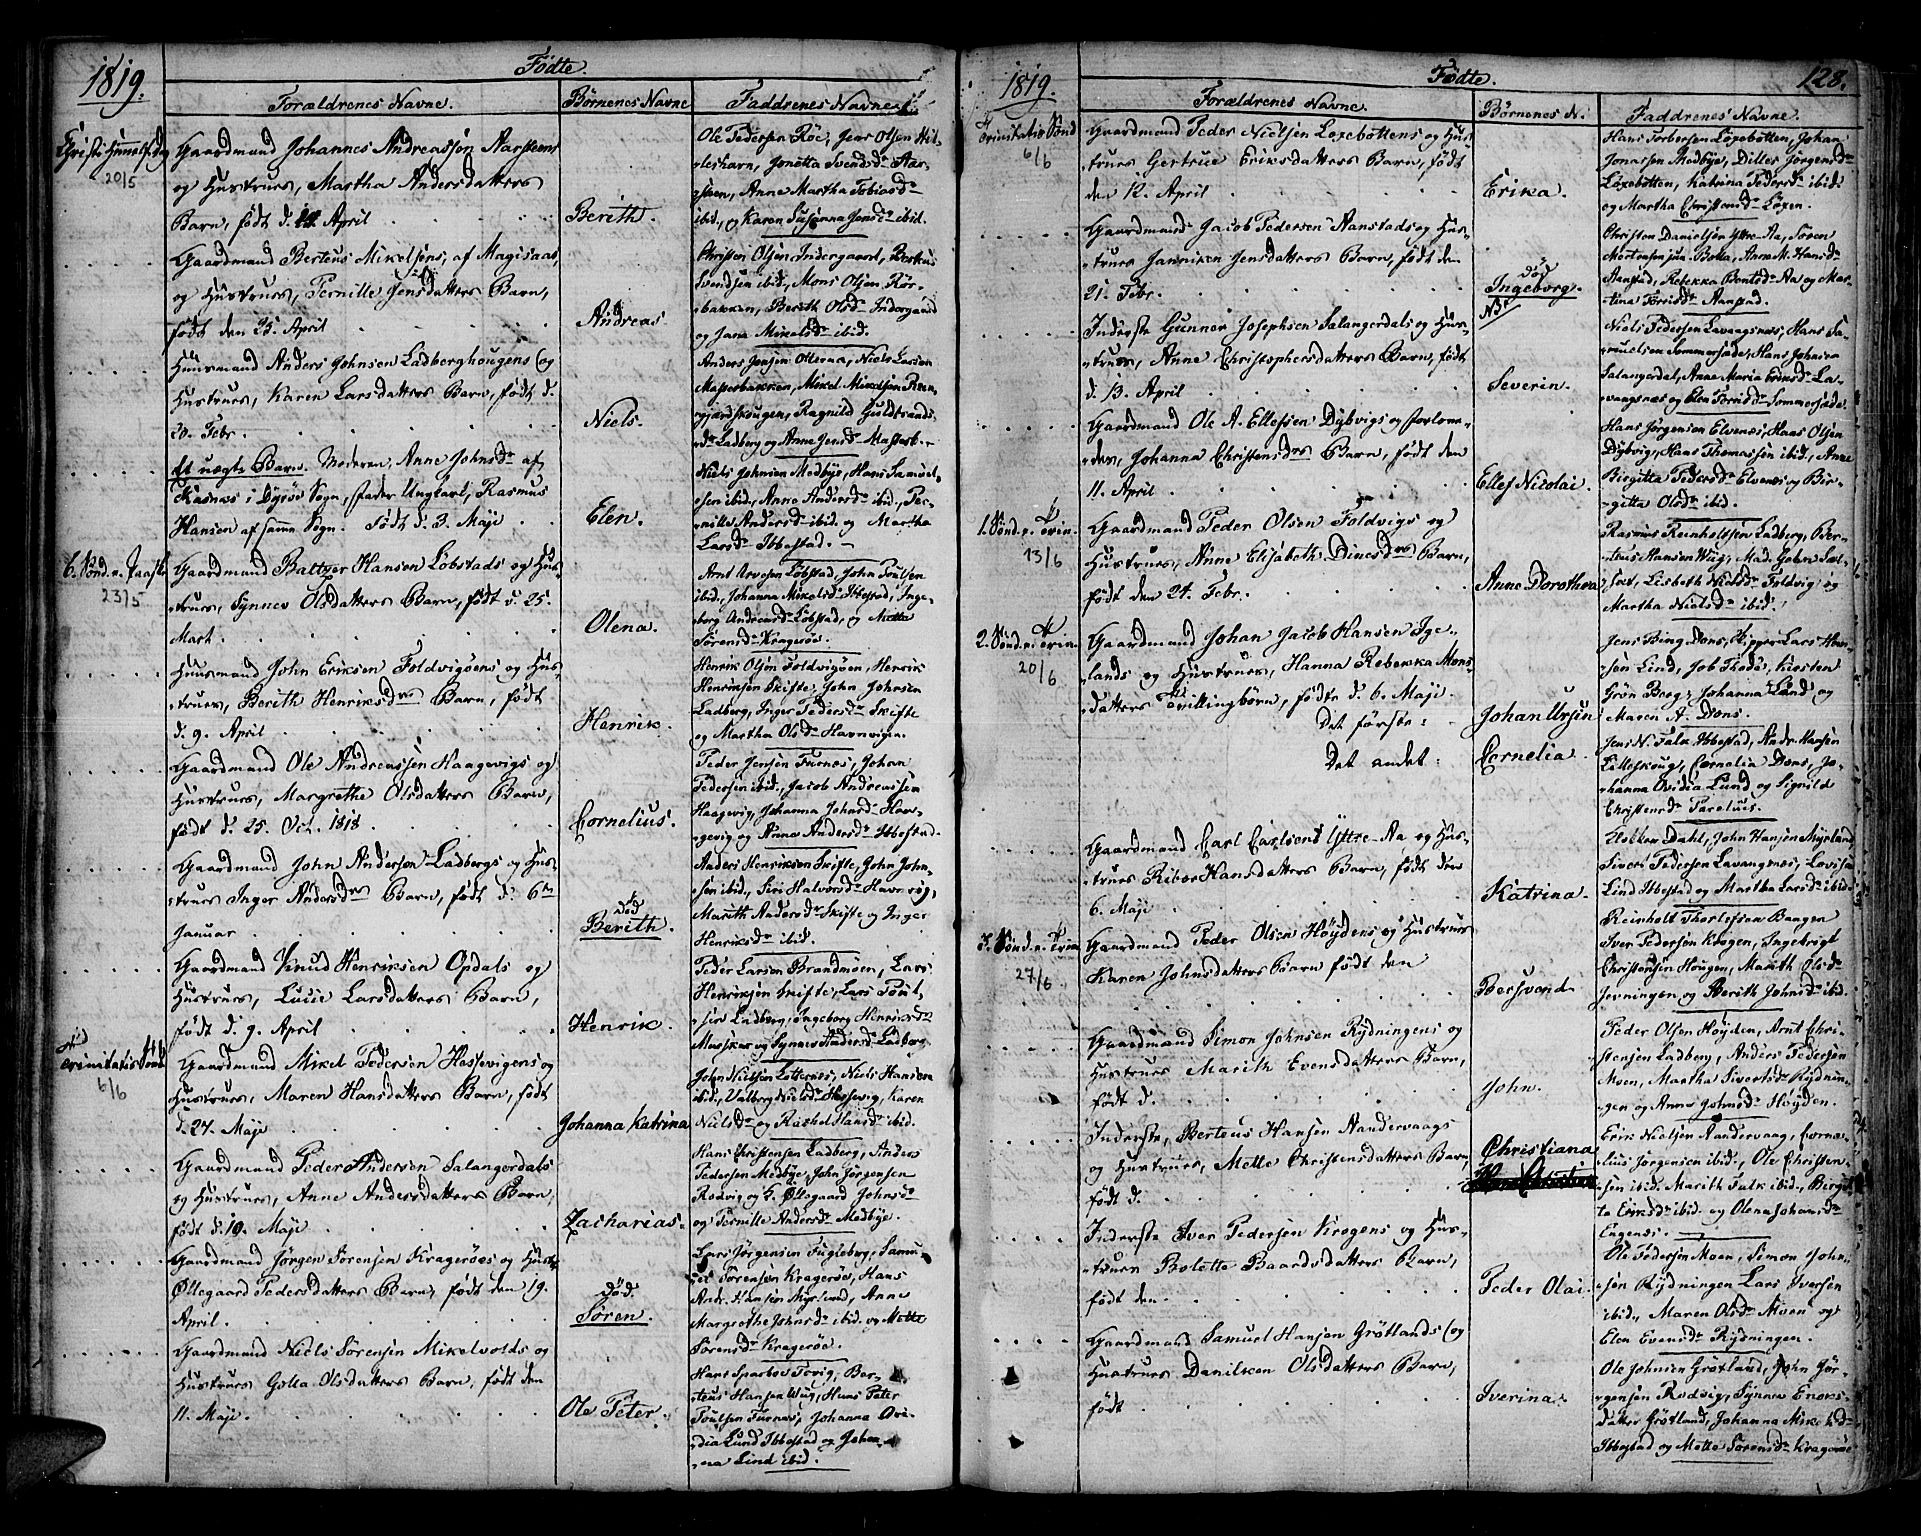 1819.
Födte.
Forældrenes Navne.
Børnenes Navne
Faddrenes Navne
Christi Himmelf. dag
20/5
Gaardmand Johannes Andreassøn Aarsteens
og Hustrues, Martha Andersdatters
Barn, født d. 24 April
Berith.
Ole Pedersen Röe, Jens Olsen Hil-
leshavn, Jonetta Svendsd. Aar-
steen, Anne Martha Tobiasd.
ibid, og Karen Susanna Jensd. ibid.
Gaardmand Berteus Mikelsens, af Magisaas,
og Hustrues, Pernille Jensdatters Barn,
født den 25. April
Andreas
Christen Olsen Indergaard, Berteus
Svendsen ibid., Mons Olsen Rör-
bakken, Berith Olsd. Indergaard
og Jana Mikelsd. ibid.
Huusmand Anders Johnsen Ladberghougens og
Hustrues, Karen Larsdatters Barn, født d.
20. Febr.
Niels.
Anders Jensen Otteraa, Niels Larsen
Masterbakken, Mikel Mikelsen Reen-
gjærdskougen, Ragnild Guldbrands-
d. Ladberg og Anne Jensd. Masterb.
Et uægte Barn. Moderen, Anne Johnsd. af
Kasnæs i Dyröe Sogn, Fader Ungkarl, Rasmus
Hansen af samme Sogn. Født d. 3. Maji
Elen.
Niels Johnsen Medbye, Hans Samuel-
sen ibid., Anne Andersd. ibid., Per-
nille Andersd. ibid. og Martha
Larsd. Ibbestad.
6. Sönd. e. Paaske
23/5
Gaardmand Baltzer Hansen Löbstads og Hus-
trues, Synnev Olsdatters Barn, født d. 25.
Mart.
Olena.
Arnt Arvesen Löbstad, John Poulsen
ibid., Johanna Mikelsd. Ibbestad, Inge-
borg Andreasd. Löbstad, og Mette
Sörensd. Kragerøe.
Huusmand John Eriksen Foldvigöens og Hus-
trues, Berith Henriksdrs Barn, født
d. 9. April
Henrik.
Henrik Olsen Foldvigöen, Henrik
Henriksen Skifte, John Johnsen
Ladberg, Inger Pedersd. Skifte
og Martha Olsd. Havnvigen.
Gaardmand Ole Andreassen Haagevigs og
Hustrues, Margrethe Olsdatters Barn,
født d. 25. Oct. 1818
Cornelius.
Peder Jensen Furnæs, Johan
Pedersen ibid., Jacob Andreassen
Haagevig, Johanna Johnsd. Haa-
gevig og Anna Andersd. Ibbestad.
Gaardmand John Andersen Ladbergs og Hus-
trues Inger Andersdrs Barn, født d. 6te
Januar
død
Berith.
Anders Henriksen Skifte, John John-
sen ibid., Siri Halvorsd. Havnvig,
Marith Andersdr Skifte og Inger
Henriksd. ibid.
Gaardmand Knud Henriksen Opdals og
Hustrues, Lucie Larsdatters Barn,
født d. 9. April
Henrik.
Peder Larsen Brandmoen, Lars
Henriksen Skifte, Lars Poul-
sen Ladberg, Ingeborg Henriksd.
og Synnev Andersd. Ladberg
Trinitatis Sönd.
6/6
Gaardmand Mikel Pedersen Hassevigens og
Hustrues, Maren Hansdatters Barn, født
d. 27. Maji
Johanna Katrina
John Nielsen Lotternes, Niels Hansen
ibid., Valborg Nielsd. Hassevig, Karen
Nielsd. og Rachel Hansd. ibid.
Gaardmand Peder Andersen Salangerdals
og Hustrues, Anne Andersdatters Barn,
født d. 10. Maji
Zacharias.
Hans Kristensen Ladberg, Anders
Pedersen Medbye, John Jørgensen
Rodvig og G. Øllegaard Johnsd.
og Pernille Andersd. Medbye.
Gaardmand Jørgen Sørensen Kragerøes og Hust.
Øllegaard Pedersdatters Barn, født den 19.
April.
død.
Søren.
Lars Jørgensen Fugleberg, Samu-
el Sørensen Kragerøe, Hans
Andr. Hansen Myrlund, Anne
Margrethe Johnsd. ibid. og Mette
Sörensd. Kragerøe.
Gaardmand Niels Sørensen Mikelvolds og
Hustrues Golla Olsdatters Barn, født den
11. Maji.
Ole Peter.
Hans Sparboe Torig, Ber-
teus Hansen Wiig, Hans Peter
Poulsen Furnæs, Johanna Ovi-
dia Lund Ibbestad og Johan-
na Lind ibid.
1819.
Födte.
128.
Forældrenes Navne.
Børnenes N.
Faddrenes Navne.
Trinitatis Sönd
6/6
Gaardmand Peder Nielsen Loxebottens og Hus-
trues Gertrue Eriksdatters Barn, født
den 12. April
Erika.
Hans Torbersen Löxebotten, Johan
Jonassen Medbye, Dillet Jørgensd.
Löxebotten, Katrina Pedersd. ibid.
og Martha Christensd. Löxen.
Gaardmand Jacob Pedersen Aanstads og Hus-
trues Janniken Jensdatters Barn, født den
21. Febr.
død
Ingeborg.
NB
Christen Danielsen Yttre-Aa, Sören
Mortensen jun. Bolla, Anne M. Hansd.
Aanstad, Rebekka Bentsd. Aa og Mar-
tina Torrisd. Aanstad.
Inderste Gunner Josephsen Salangerdals og Hus-
trues, Anne Christophersdatters Barn, født
d. 13. April
Severin.
Niels Pedersen Lavangsnæs, Hans Sa-
muelsen Sommersæde, Hans Johnsen
Salangerdal, Anne Maria Eriksd. La-
vangsnæs og Elen Torrisd. Sommersæde.
Gaardmand Ole A. Ellefsen Dybvigs og forlove-
des, Johanna Christensdrs Barn, født den
11. April
Ellef Nicolai.
Hans Jørgensen Elvenæs, Hans Olsen
Dybvig, Hans Thomassen ibid., Anne
Birgitta Pedersd. Elvenæs og Bir-
gitta Olsd. ibid.
1. Sönd. e. Trin.
13/6
Gaardmand Peder Olsen Foldvigs og
Hustrues, Anne Elisabeth Dinesdrs Barn,
født den 24. Febr.
Anne Dorothea
Rasmus Reinholtsen Ladberg, Ber-
teus Hansen Wiig, Mad. Gjeben Sæl-
set, Lisbeth Nielsd. Foldvig og
Martha Nielsd. ibid.
2. Sönd. e. Trin.
20/6
Gaardmand Johan Jacob Hansen Ige-
lands og Hustrues, Hanna Rebekka Mons-
datters Tvillingbörn, födte d. 6. Maji.
Det første:
Johan Ursin
Jens Bing Dons, Skipper Lars Han-
sen Lind, Job Thode, Kirsten
Grön Berg, Johanna Lind og
Maren A. Dons.
Det andet:
Cornelia.
Jens N. Falk Ibbestad, Andr. Hansen
Lilleskoug, Cornelia Dons, Jo-
hanna Ovidia Lund og Signilde
Christensd.
Gaardmand Carl Carlsens Yttre-Aa, og Hus-
trues Riber Hansdatters Barn, født den
6. Maji
Katrina.
Klokker Dahl, John Hansen Myrland,
Sivert Pedersen Lavangnæs, Lovisa
Lind Ibbestad og Martha Larsd. ibid.
3. Sönd. e. Trin.
27/6
Gaardmand Peder Olsen Höydens og Hustrues
Karen Johnsdatters Barn født den
Bersvend.
Reinholt Thorlefsen Baagen
Iver Pedersen Krogen, Ingebrigt
Christensen Hougen, Marith Olsd.
Jevningen og Berith Johnsd. ibid.
Gaardmand Simon Johnsen Rydningens og
Hustrues Marith Evensdatters Barn,
født d.
John.
Peder Olsen Høyden, Arnt Chri-
stensen Ladberg, Anders Pedersen
Moen, Martha Sivertsd. Rydnin-
gen og Anne Johnsd. Høyden.
Inderste, Berteus Hansen Aandervaags
og Hustrues, Mette Christensdatters Barn,
født d.
Christiana
Erik Nielsen Aandervaag, Corne-
lius Jørgensen ibid., Ole Christen-
sen ibid. Marith Falk ibid., Birgit-
ta Eriksd. ibid. og Olena Johansd.
Engenæs.
Inderste Iver Pedersen Krogens og Hus-
trues Bolette Baardsdatters Barn,
født den
Peder Olai.
Ole Pedersen Moen, Simon John-
sen Rydningen Lars Iversen
ibid., Maren Olsd. Moen og
Elen Evensd. Rydningen.
Gaardmand Samuel Hansen Grötlands og
Hustrues Danilken Olsdatters Barn,
født
Iverina.
Ole Johnsen Grötland, John Jör-
gensen Rodvig, Synnev Enoks-
datter Grötland, Johanna Mikelsd.
Ibbestad og Mette Sörensd. Kragerøe